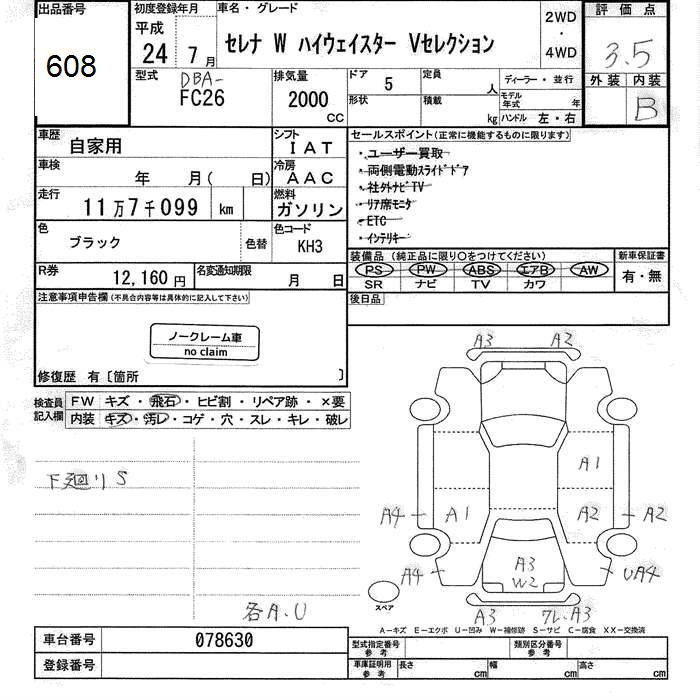 出品番号
608
初度登録年月
平成
24 年 7 月
車名・グレード
セレナ W ハイウェイスター Vセレクション
2WD
・
4WD
評価点
3.5
外装 内装
B
型式
DBA-
FC26
排気量
2000
CC
ドア
5
形状
定員
人
積載
kg
ディーラー・並行
モデル年式 年
ハンドル 左・右
車歴
自家用
シフト
IAT
車検
年 月( 日)
冷房
AAC
走行
11万7千099 km
燃料
ガソリン
色
ブラック
色替
色コード
KH3
R券
12,160 円
名変通知期限
月 日
セールスポイント(正常に機能するものに限ります)
・ユーザー買取
・両側電動スライドドア
・社外ナビTV
・リア席モニタ
・ETC
・インテリキー
装備品 (純正品に限り○をつけてください)
PS PW ABS エアB AW
SR ナビ TV カワ
新車保証書
有・無
後日品
注意事項申告欄(不具合内容等は具体的に記入して下さい)
ノークレーム車
no claim
修復歴 有〔箇所 〕
検査員
記入欄
FW キズ・飛石・ヒビ割・リペア跡・×要
内装 キズ・汚レ・コゲ・穴・スレ・キレ・破レ
下廻りS
各A.U
A3 A2
A1
A4 A1 A2 A2
A4 A3 UA4
W2
スペア
A3 フレ.A3
A―キズ E―エクボ U―凹み W―補修跡 S―サビ C―腐食 XX―交換済
車台番号 078630
登録番号
型式指定番号
参考
類別区分番号
参考
車庫証明用
参考
長さ cm 幅 cm 高さ cm